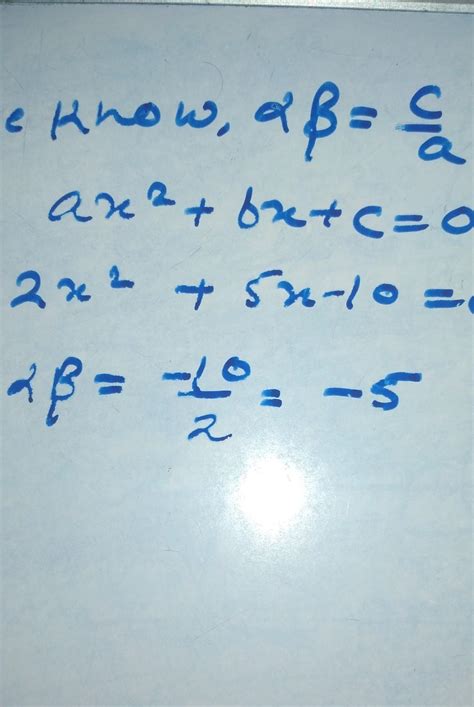 e know, αβ = c/a
ax² + bx + c = 0
2x² + 5x - 10 =
αβ = -10/2 = -5